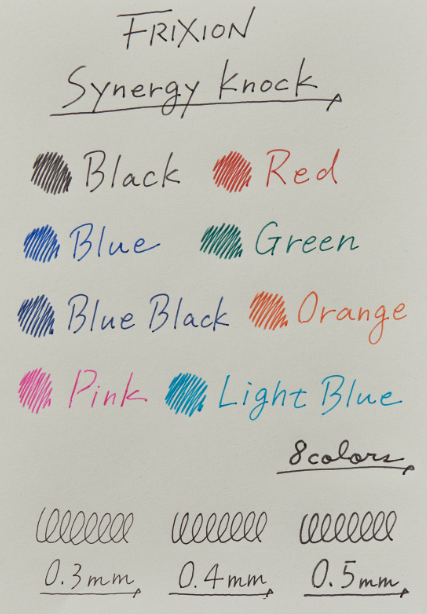 FRIXION
Synergy Knock
Black Red
Blue Green
Blue Black Orange
Pink Light Blue
8colors
0.3mm 0.4mm 0.5mm